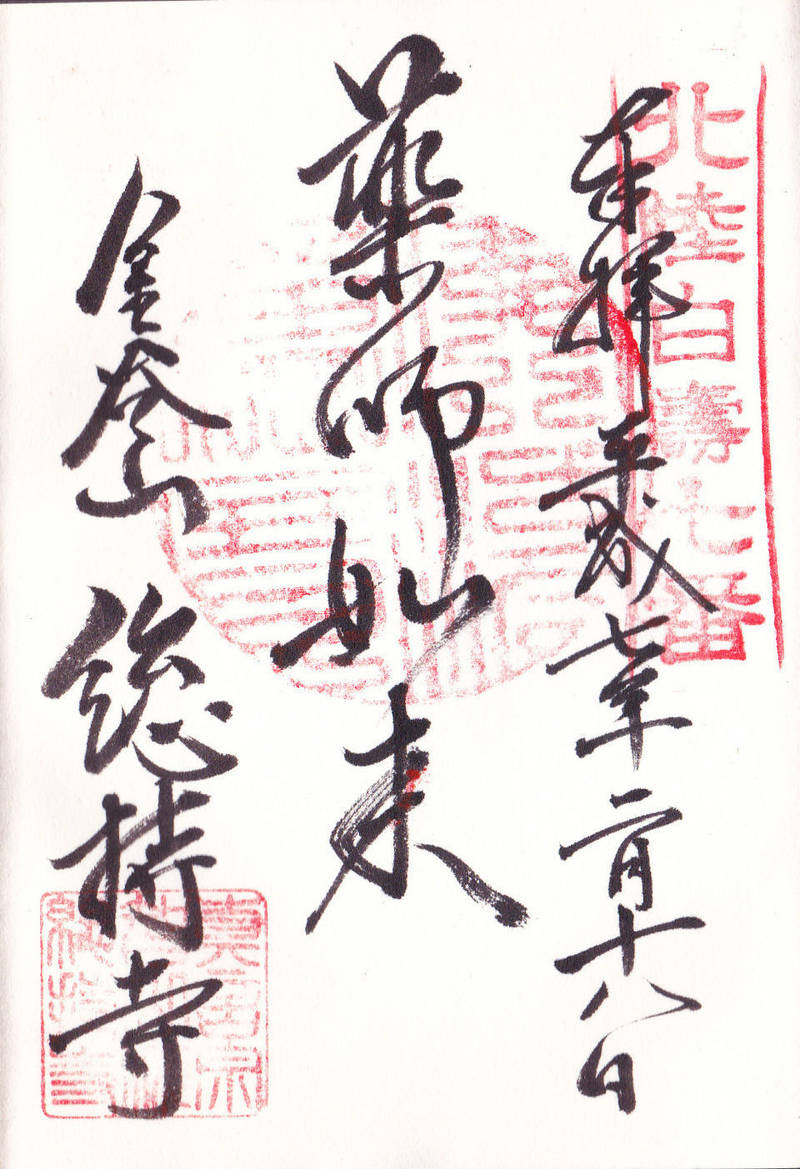 北陸白壽七番
奉拝 平成七年二月十八日
薬師如来
総持寺
真言宗
総持寺